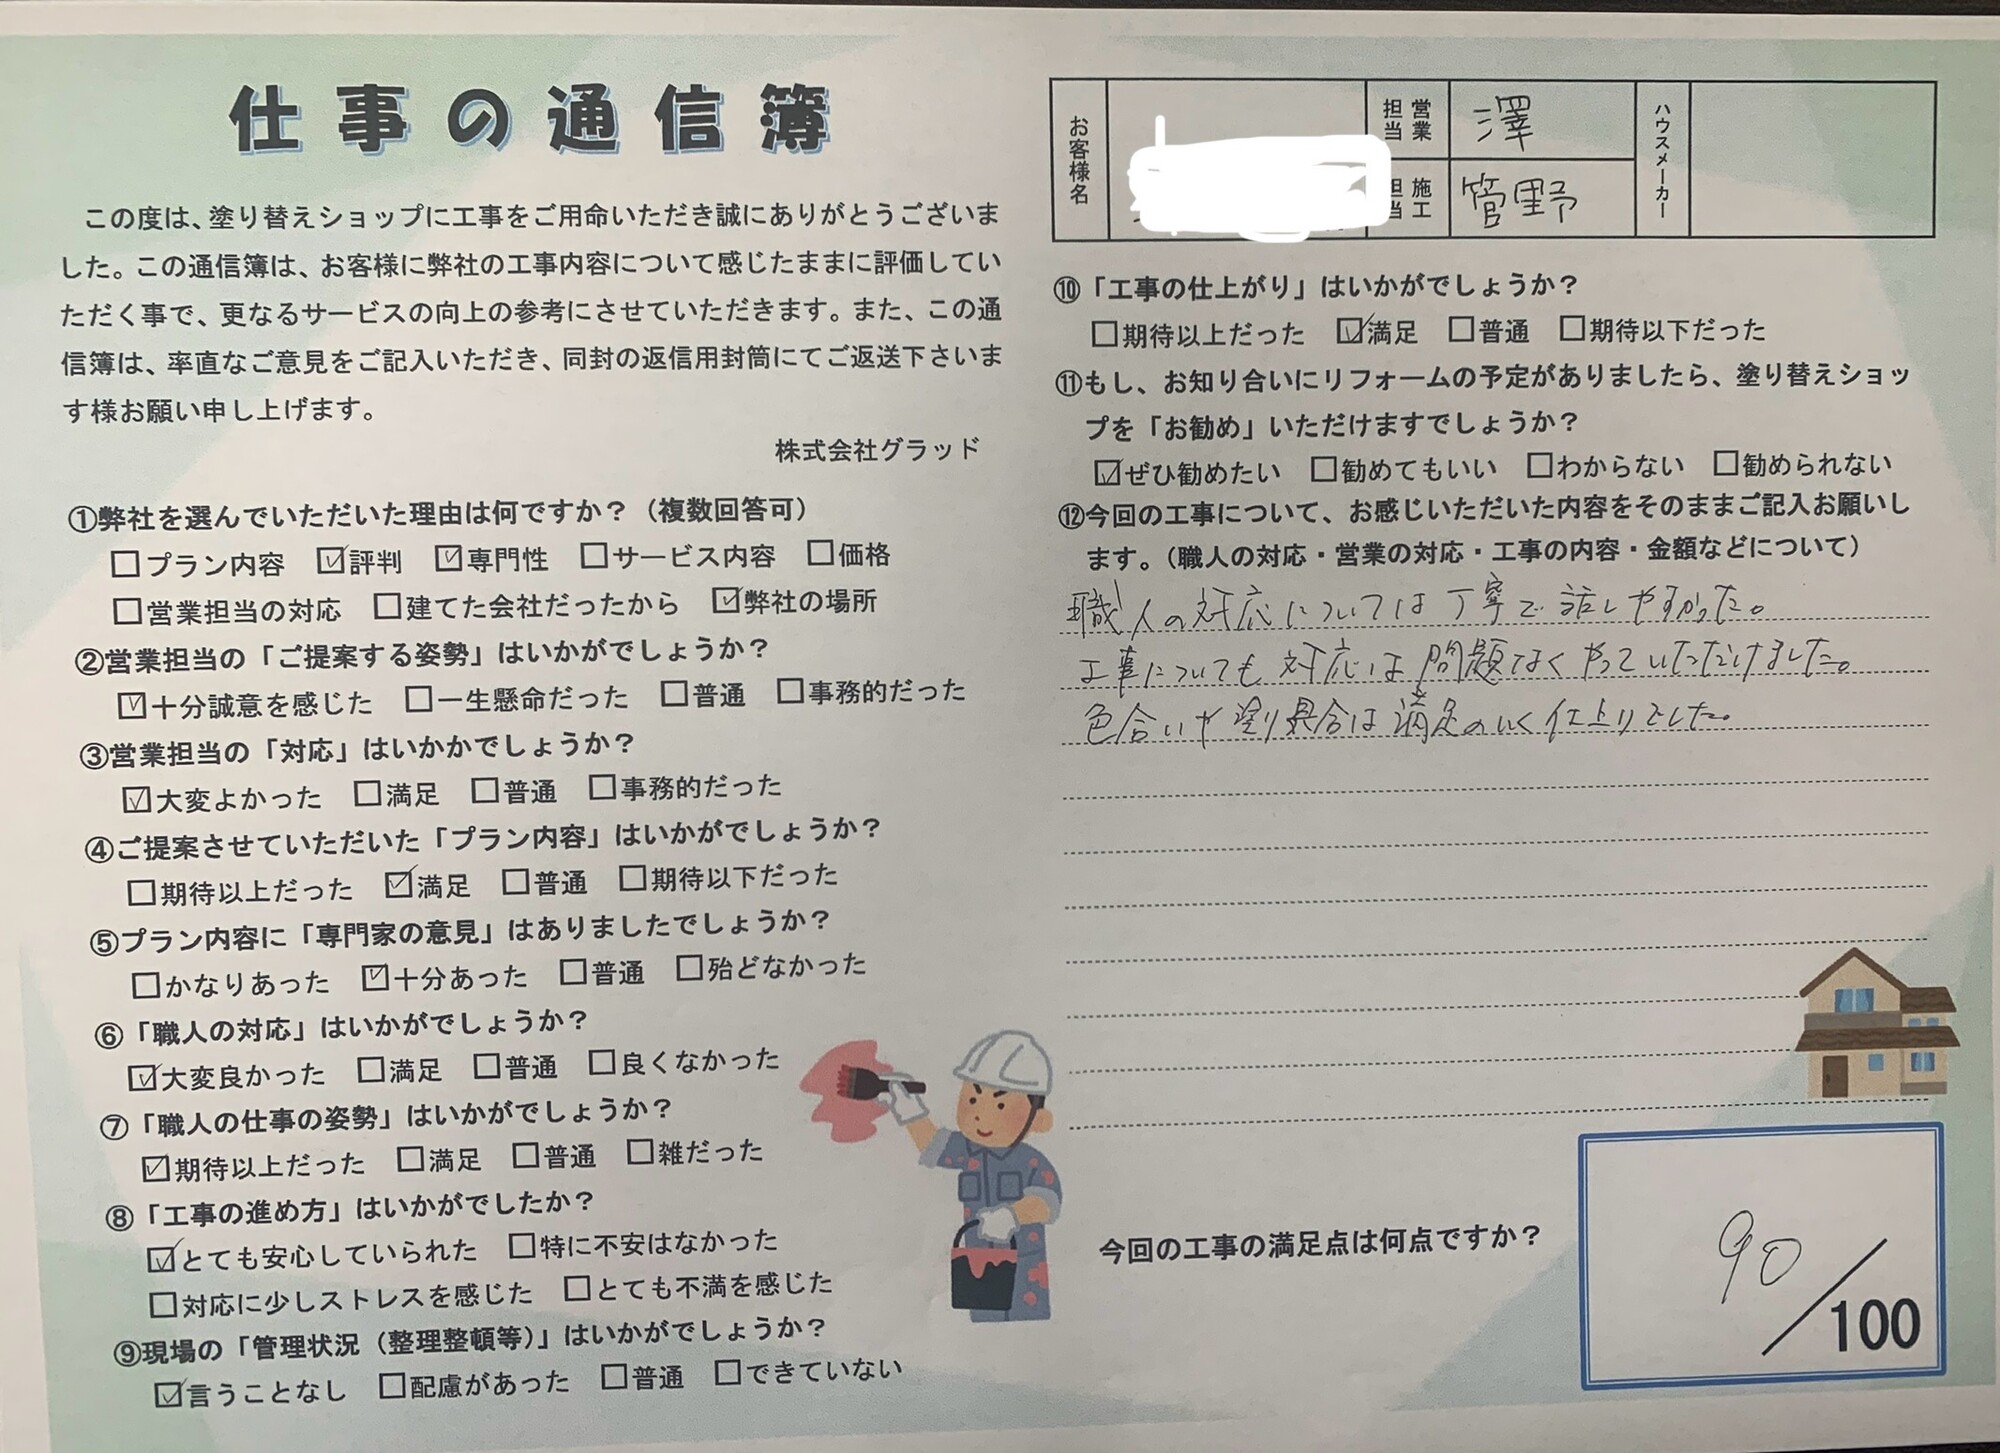 仕事の通信簿
この度は、塗り替えショップに工事をご用命いただき誠にありがとうございま
した。この通信簿は、お客様に弊社の工事内容について感じたままに評価してい
ただく事で、更なるサービスの向上の参考にさせていただきます。また、この通
信簿は、率直なご意見をご記入いただき、同封の返信用封筒にてご返送下さいま
す様お願い申し上げます。
株式会社グラッド
①弊社を選んでいただいた理由は何ですか？（複数回答可）
□プラン内容 ☑評判 ☑専門性 □サービス内容 □価格
□営業担当の対応 □建てた会社だったから ☑弊社の場所
②営業担当の「ご提案する姿勢」はいかがでしょうか？
☑十分誠意を感じた □一生懸命だった □普通 □事務的だった
③営業担当の「対応」はいかかでしょうか？
☑大変よかった □満足 □普通 □事務的だった
④ご提案させていただいた「プラン内容」はいかがでしょうか？
□期待以上だった ☑満足 □普通 □期待以下だった
⑤プラン内容に「専門家の意見」はありましたでしょうか？
□かなりあった ☑十分あった □普通 □殆どなかった
⑥「職人の対応」はいかがでしょうか？
☑大変良かった □満足 □普通 □良くなかった
⑦「職人の仕事の姿勢」はいかがでしょうか？
☑期待以上だった □満足 □普通 □雑だった
⑧「工事の進め方」はいかがでしたか？
☑とても安心していられた □特に不安はなかった
□対応に少しストレスを感じた □とても不満を感じた
⑨現場の「管理状況（整理整頓等）」はいかがでしょうか？
☑言うことなし □配慮があった □普通 □できていない
お客様名
営業担当 澤
施工担当 管野
ハウスメーカー
⑩「工事の仕上がり」はいかがでしょうか？
□期待以上だった ☑満足 □普通 □期待以下だった
⑪もし、お知り合いにリフォームの予定がありましたら、塗り替えショッ
プを「お勧め」いただけますでしょうか？
☑ぜひ勧めたい □勧めてもいい □わからない □勧められない
⑫今回の工事について、お感じいただいた内容をそのままご記入お願いし
ます。（職人の対応・営業の対応・工事の内容・金額などについて）
職人の対応については丁寧で話しやすかった。
工事についても対応は問題なくやっていただけました。
色合いや塗り具合は満足のいく仕上りでした。
今回の工事の満足点は何点ですか？
90／100